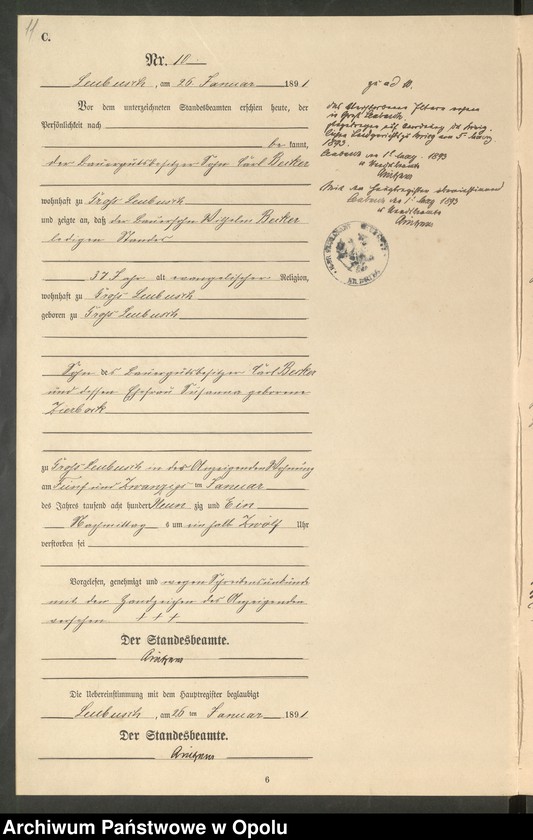 11
C.
Nr. 10.
Leubusch, am 26. Januar 1891
Vor dem unterzeichneten Standesbeamten erschien heute, der
Persönlichkeit nach
be kannt,
der Bauergutsbesitzer Carl Becker
wohnhaft zu Groß Leubusch
und zeigte an, daß der Bauersohn Wilhelm Becker
ledigen Standes
37 Jahr alt evangelischer Religion,
wohnhaft zu Groß Leubusch
geboren zu Groß Leubusch
Sohn des Bauergutsbesitzer Carl Becker
und dessen Ehefrau Susanna geborene
Zierbock
zu Groß Leubusch in des Anzeigenden Wohnung
am Fünf und Zwanzigs ten Januar
des Jahres tausend acht hundert Neun zig und Ein
Nachmittag s um ein halb Zwölf Uhr
verstorben sei
Vorgelesen, genehmigt und wegen Schreibensunkunde
mit den Handzeichen des Anzeigenden
versehen + + +
Der Standesbeamte.
Die Uebereinstimmung mit dem Hauptregister beglaubigt
Leubusch, am 26 ten Januar 1891
Der Standesbeamte.
6
zu
des Verstorbenen Eltern
in Groß Leubusch
1893.
Leubusch 1893
Leubusch 1893
Archiwum Państwowe w Opolu